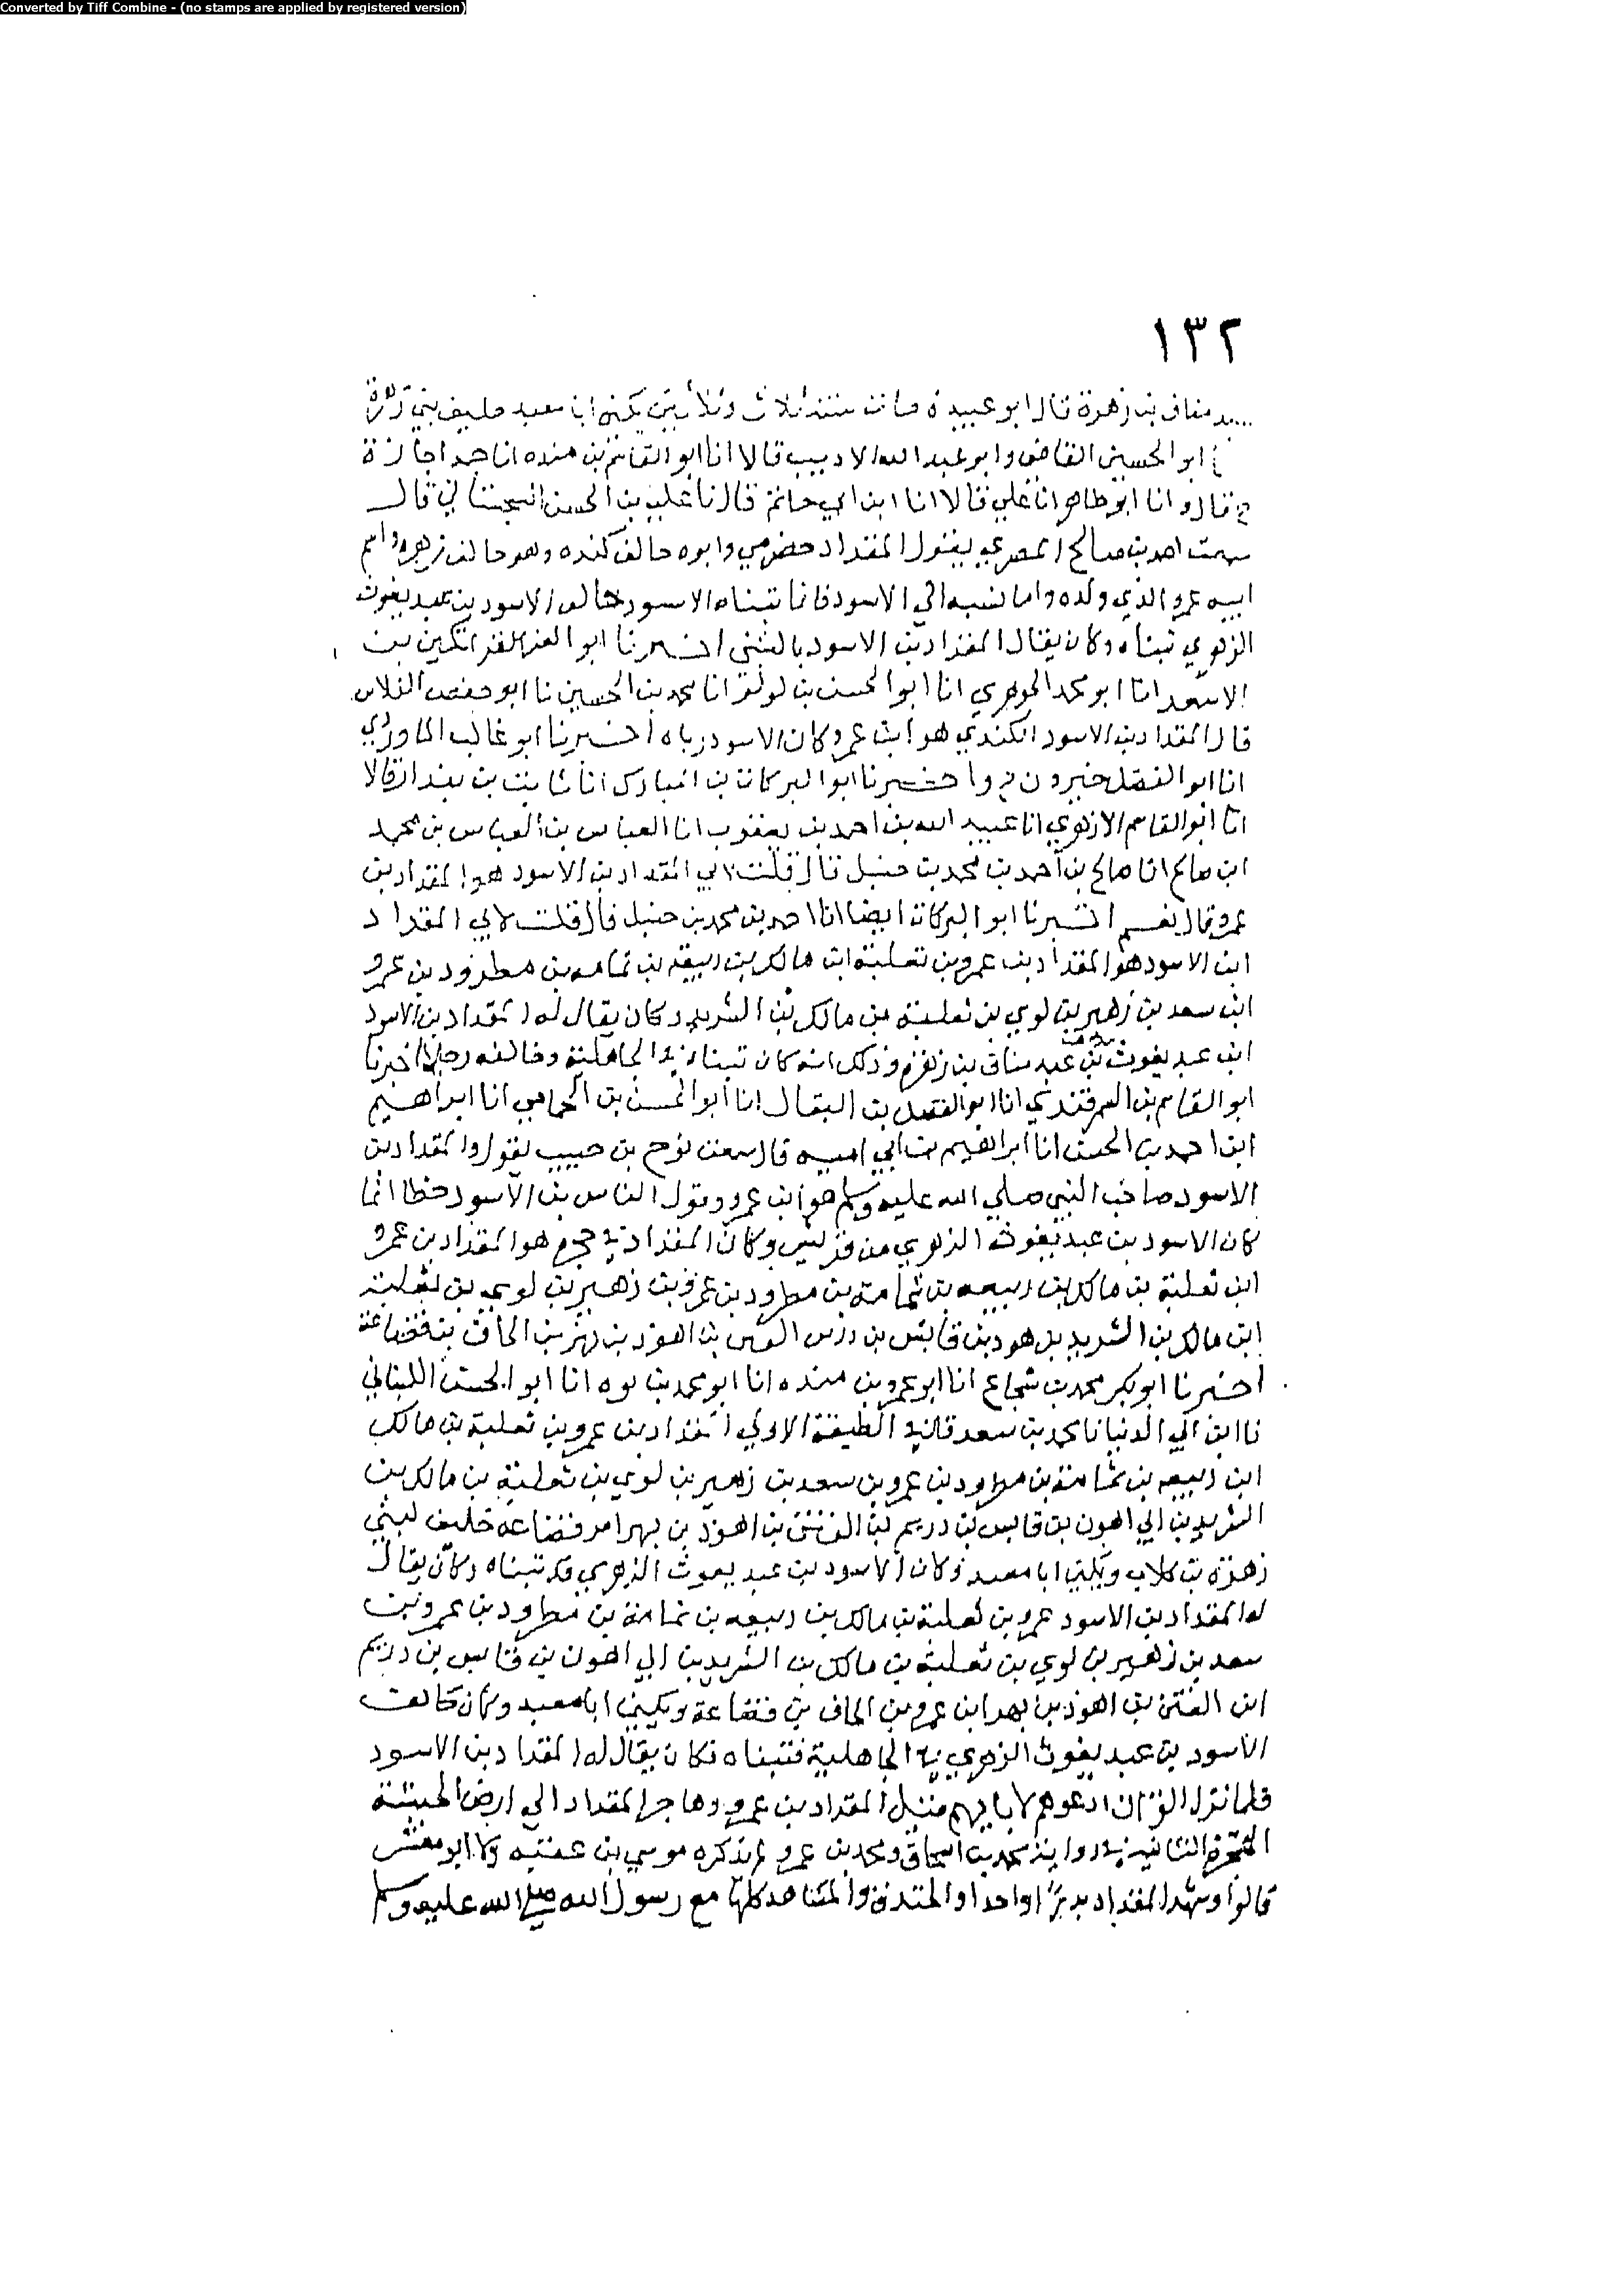 Converted by Tiff Combine - (no stamps are applied by registered version)
١٣٢
مناف بن زهرة قال ابو عبيدة مات سنة ثلاث وثلاثين يكنى ابا معبد حليف بني زهرة
ابو الحسين القاضي وابو عبد الله الاديب قالا انا ابو القاسم بن منده انا حمد اجازة
ح قال وانا ابو طاهر انا علي قالا انا ابن ابي حاتم قال نا علي بن الحسن الهسنجاني قال
سمعت احمد بن صالح المصري يقول المقداد حضرمي وابوه حالف كنده وهو حالف زهره واسم
ابيه عمرو الذي ولده واما نسبه الى الاسود فانما تبناه الاسود حالف الاسود بن عبد يغوث
الزهري تبناه وكان يقال المقداد بن الاسود بالتبني اخبرنا ابو العز الفز اتكين بن
الاسعد انا ابو محمد الجوهري انا ابو الحسن بن لولو انا محمد بن الحسين نا ابو حفص الفلاس
قال المقداد بن الاسود الكندي هو ابن عمرو كان الاسود رباه اخبرنا ابو غالب الماوردي
انا ابو الفضل خيرون ح واخبرنا ابو البركات بن المبارك انا ثابت بن بندار قالا
انا ابو القاسم الازهري انا عبيد الله بن احمد بن يعقوب انا العباس بن العباس بن محمد
ابن صالح انا صالح بن احمد بن محمد بن حنبل قال قلت لابي المقداد بن الاسود هو المقداد بن
عمرو قال نعم اخبرنا ابو البركات ايضا انا احمد بن محمد بن حنبل قال قلت لابي المقداد
ابن الاسود هو المقداد بن عمرو بن ثعلبة ابن مالك بن ربيعه بن ثمامه بن مطرود بن عمرو
ابن سعد بن زهير بن لوي بن ثعلبة بن مالك بن الشريد وكان يقال له المقداد بن الاسود
ابن عبد يغوث بن عبد مناف بن زهره وذلك انه كان تبناه في الجاهلية وخالفه رجال اخبرنا
ابو القاسم بن السمرقندي انا ابو الفضل بن البقال انا ابو الحسن بن الحمامي انا ابراهيم
ابن احمد بن الحسن انا ابراهيم بن ابي اميه قال سمعت نوح بن حبيب يقول والمقداد بن
الاسود صاحب النبي صلي الله عليه وسلم هو ابن عمرو وقول الناس بن الاسود خطا انما
كان الاسود بن عبد يغوث الزهري من قريش وكان المقداد في حجره هو المقداد بن عمرو
ابن ثعلبة بن مالك بن ربيعه بن ثمامة بن مطرود بن عمرو بن زهير بن لوي بن ثعلبة
ابن مالك بن الشريد بن هود بن قابس بن دريس القين بن اهوذ بن بهز بن الحاف بن قضاعة
اخبرنا ابو بكر محمد بن شجاع انا ابو عمرو بن منده انا ابو محمد بن يوه انا ابو الحسن اللبناني
نا ابن ابي الدنيا نا محمد بن سعد قال في الطبقة الاولي المقداد بن عمرو بن ثعلبة بن مالك
ابن ربيعه بن ثمامة بن مطرود بن عمرو بن سعد بن زهير بن لوي بن ثعلبة بن مالك بن
الشريد بن ابي اهون بن قابس بن دريم بن القين بن اهوذ بن بهرا من قضاعه حليف لبني
زهرة بن كلاب ويكنى ابا معبد وكان الاسود بن عبد يغوث الزهري قد تبناه وكان يقال
له المقداد بن الاسود عمرو بن ثعلبة بن مالك بن ربيعه بن ثمامة بن مطرود بن عمرو بن
سعد بن زهير بن لوي بن ثعلبة بن مالك بن الشريد بن ابي اهون بن قابس بن دريم
ابن القين بن اهوذ بن بهرا بن عمرو بن الحاف بن قضاعة ويكنى ابا معبد وكان حالف
الاسود بن عبد يغوث الزهري في الجاهلية فتبناه فكان يقال له المقداد بن الاسود
فلما نزل القران ادعوهم لابايهم فقيل المقداد بن عمرو وهاجر المقداد الي ارض الحبشة
الهجرة الثانية في رواية محمد بن اسحاق ومحمد بن عمرو لم يذكره موسي بن عقبه ولا ابو معشر
قالوا وشهد المقداد بدرا واحدا والخندق والمشاهد كلها مع رسول الله صلي الله عليه وسلم